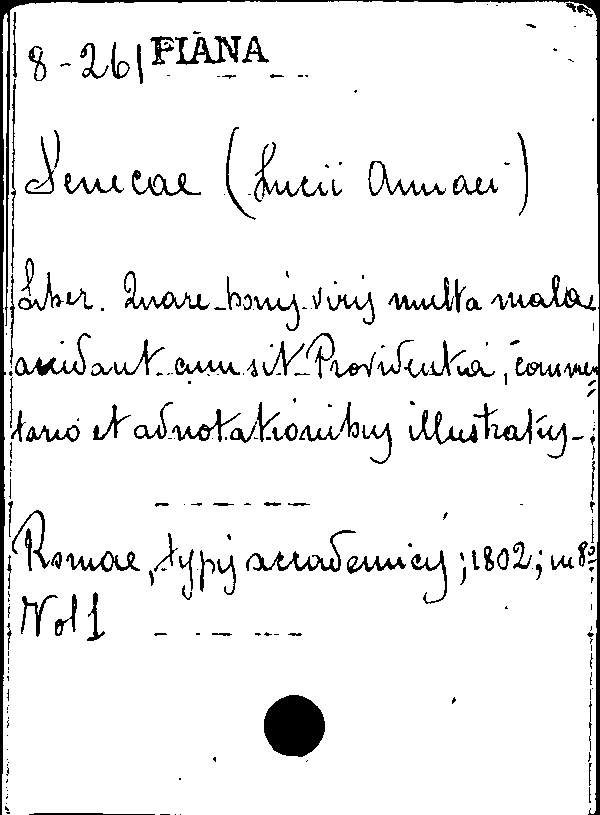 8-261 PIANA
Senecae (Lucii Annaei)
Liber. Quare bonis viris multa mala
accidant cum sit Providentia, commen=
tario et adnotationibus illustratus.
Romae, typis accademicis; 1802; in 8º
Vol 1